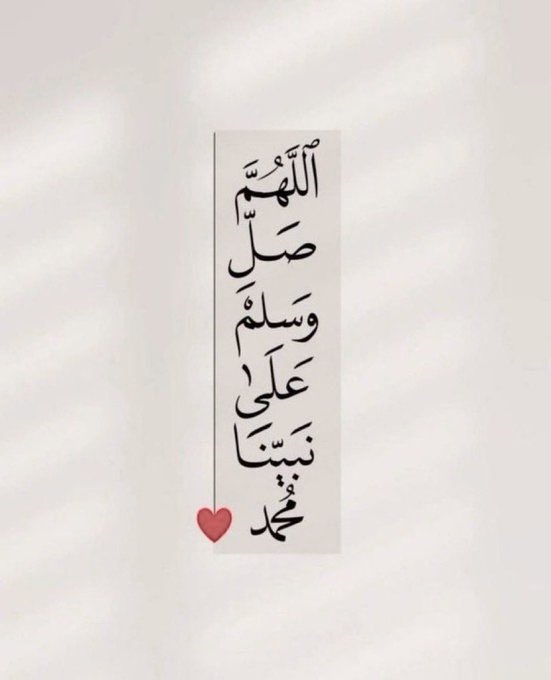 ٱللَّهُمَّ
صَلِّ
وَسَلِمْ
عَلَىٰ
نَبِيّنَا
مُحمد